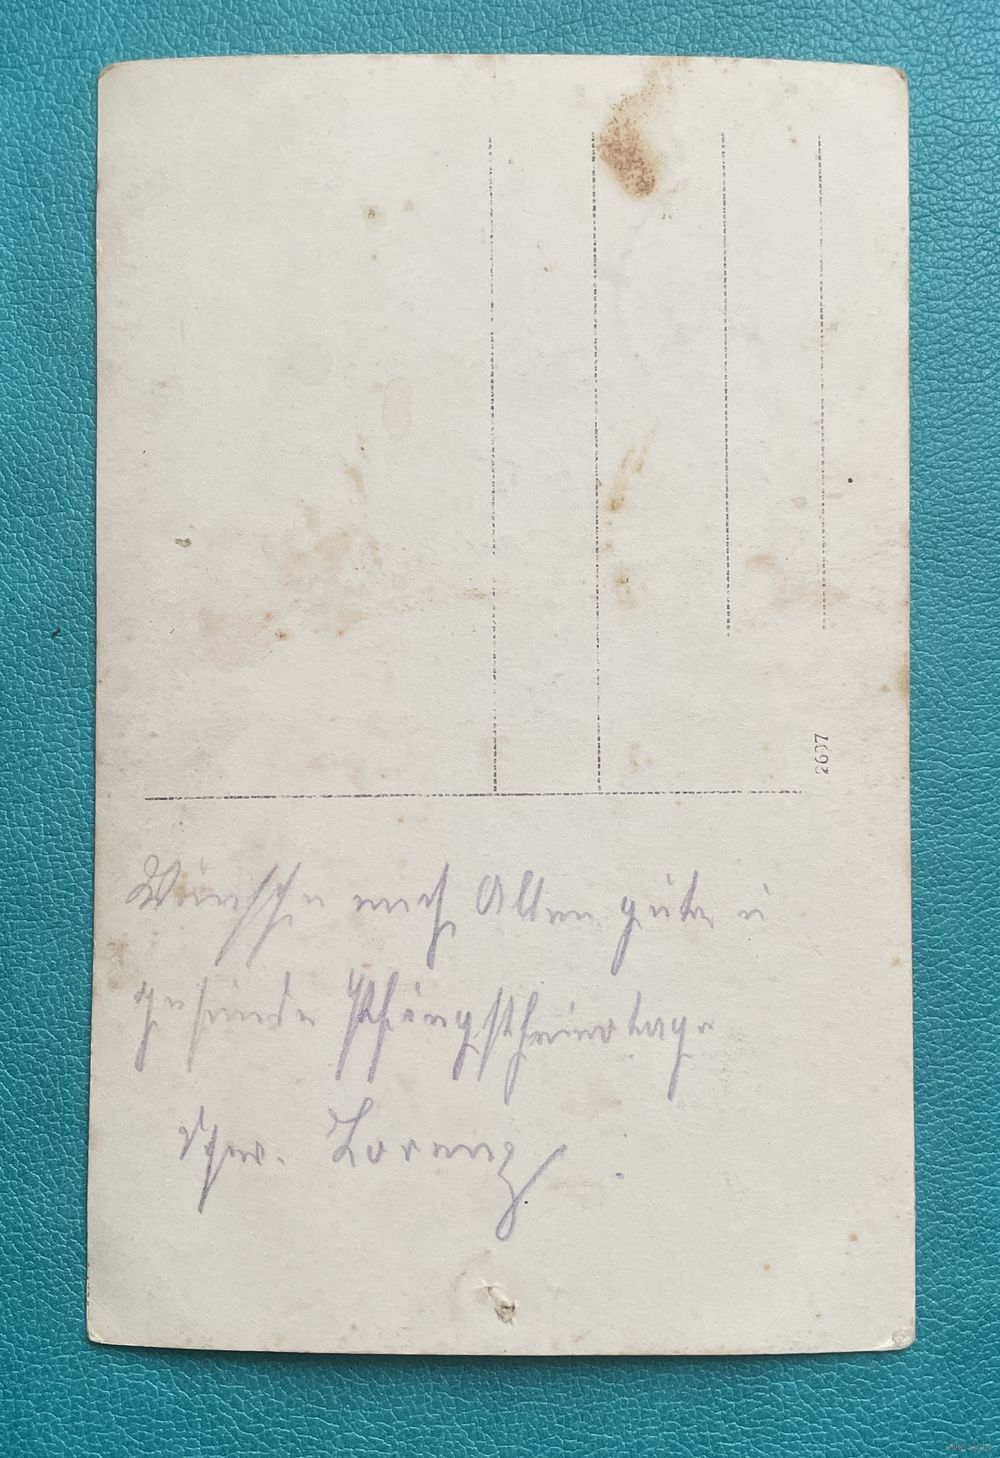 2697
Wünsche euch Allen gute u
gesunde Pfingstfeiertage
Lorenz